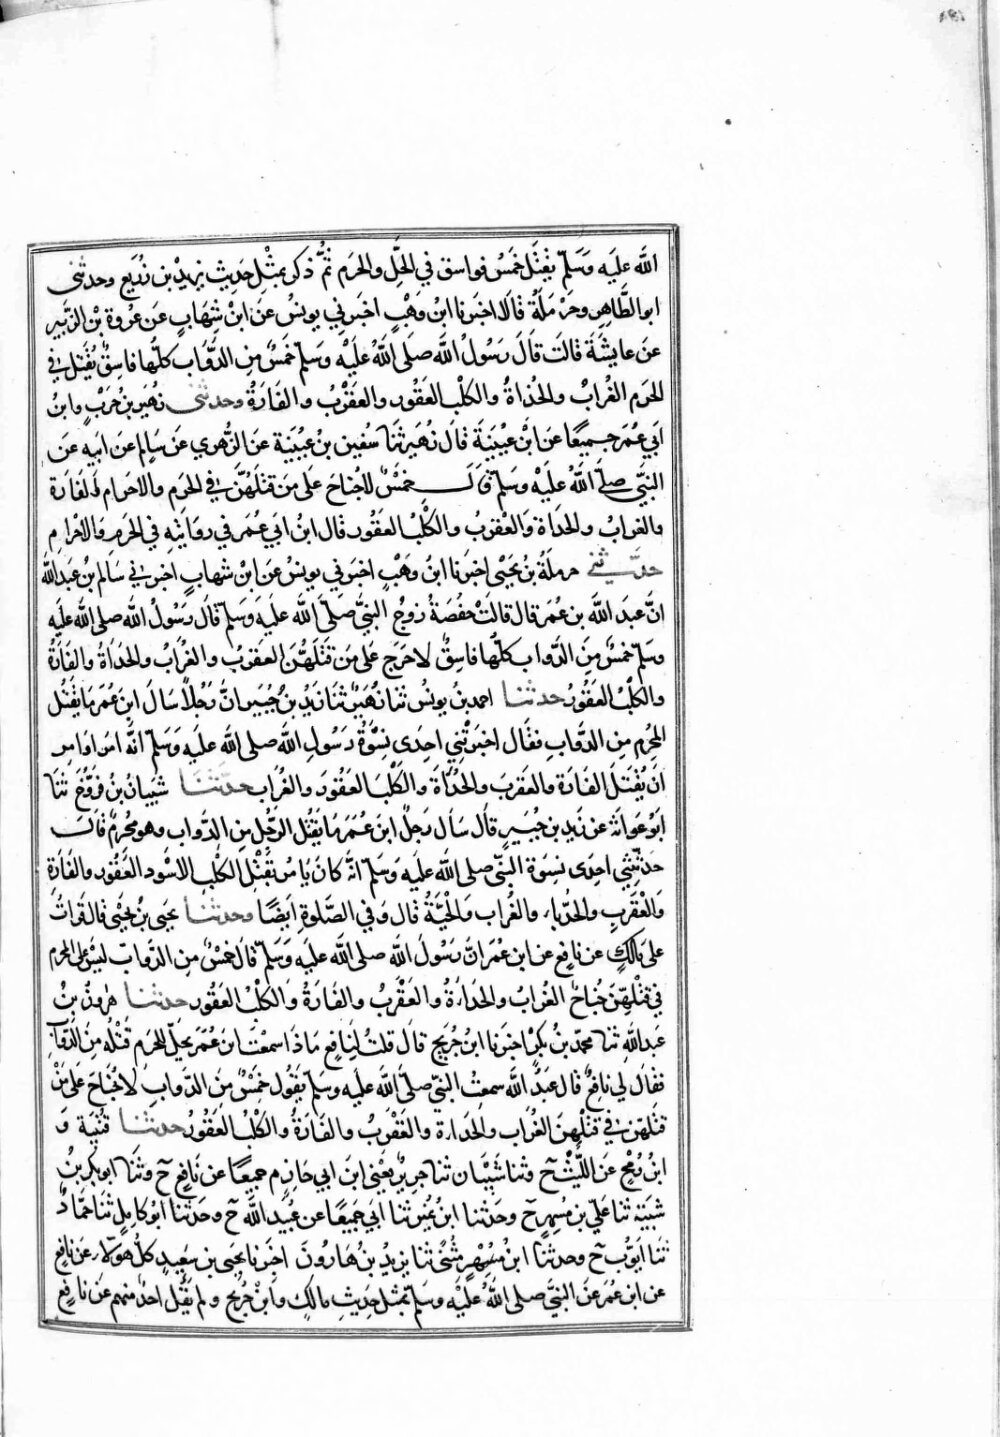 الله عليه وسلم بقتل خمس فواسق في الحل والحرم ثم ذكر بمثل حديث يزيد بن زريع وحدثنى
ابو الطاهر وحرملة قالا اخبرنا ابن وهب اخبرني يونس عن ابن شهاب عن عروة بن الزبير
عن عايشة قالت قال رسول الله صلى الله عليه وسلم خمس من الدواب كلها فاسق يقتل في
الحرم الغراب والحداة والكلب العقور والعقرب والفارة وحدثنى زهير بن حرب وابن
ابي عمر جميعا عن ابن عيينة قال زهير ثنا سفين بن عيينة عن الزهري عن سالم عن ابيه عن
النبي صلى الله عليه وسلم قال خمس لا جناح على من قتلهن في الحرم والاحرام الفارة
والغراب والحداة والعقرب والكلب العقور قال ابن ابي عمر في روايته في الحرم والاحرام
حدثني حرملة بن يحيى اخبرنا ابن وهب اخبرني يونس عن ابن شهاب اخبرني سالم بن عبد الله
ان عبد الله بن عمر قال قالت حفصة زوج النبي صلى الله عليه وسلم قال رسول الله صلى الله عليه
وسلم خمس من الدواب كلها فاسق لا حرج على من قتلهن العقرب والغراب والحداة والفارة
والكلب العقور حدثنا احمد بن يونس ثنا زهير ثنا زيد بن جبير ان رجلا سال ابن عمر ما يقتل
المحرم من الدواب فقال اخبرتني احدى نسوة رسول الله صلى الله عليه وسلم انه امر او امر
ان يقتل الفارة والعقرب والحداة والكلب العقور والغراب حدثنا شيبان بن فروخ ثنا
ابو عوانة عن زيد بن جبير قال سال رجل ابن عمر ما يقتل الرجل من الدواب وهو محرم قال
حدثتني احدى نسوة النبي صلى الله عليه وسلم انه كان يامر بقتل الكلب الاسود العقور والفارة
والعقرب والحديا والغراب والحية قال وفي الصلوة ايضا وحدثنا يحيى بن يحيى قال قرات
على مالك عن نافع عن ابن عمر ان رسول الله صلى الله عليه وسلم قال خمس من الدواب ليس على المحرم
في قتلهن جناح الغراب والحدارة والعقرب والفارة والكلب العقور حدثنا هرون بن
عبد الله ثنا محمد بن بكر اخبرنا ابن جريج قال قلت لنافع ماذا سمعت ابن عمر يحل للحرم قتله من الدواب
فقال لي نافع قال عبد الله سمعت النبي صلى الله عليه وسلم يقول خمس من الدواب لا جناح على من
قتلهن في قتلهن الغراب والحدارة والعقرب والفارة والكلب العقور حدثنا قتيبة و
ابن رمح عن الليث ح وثنا شيبان ثنا جرير يعنى ابن ابي حازم جميعا عن نافع ح وثنا ابو بكر بن
شيبة ثنا علي بن مسهر ح وحدثنا ابن نمير ثنا ابي جميعا عن عبيد الله ح وحدثنا ابو كامل ثنا حماد
ثنا ايوب ح وحدثنا ابن مثنى ثنا يزيد بن هارون اخبرنا يحيى بن سعيد كل هولاء عن نافع
عن ابن عمر عن النبي صلى الله عليه وسلم بمثل حديث مالك وابن جريج ولم يقل احد منهم عن نافع